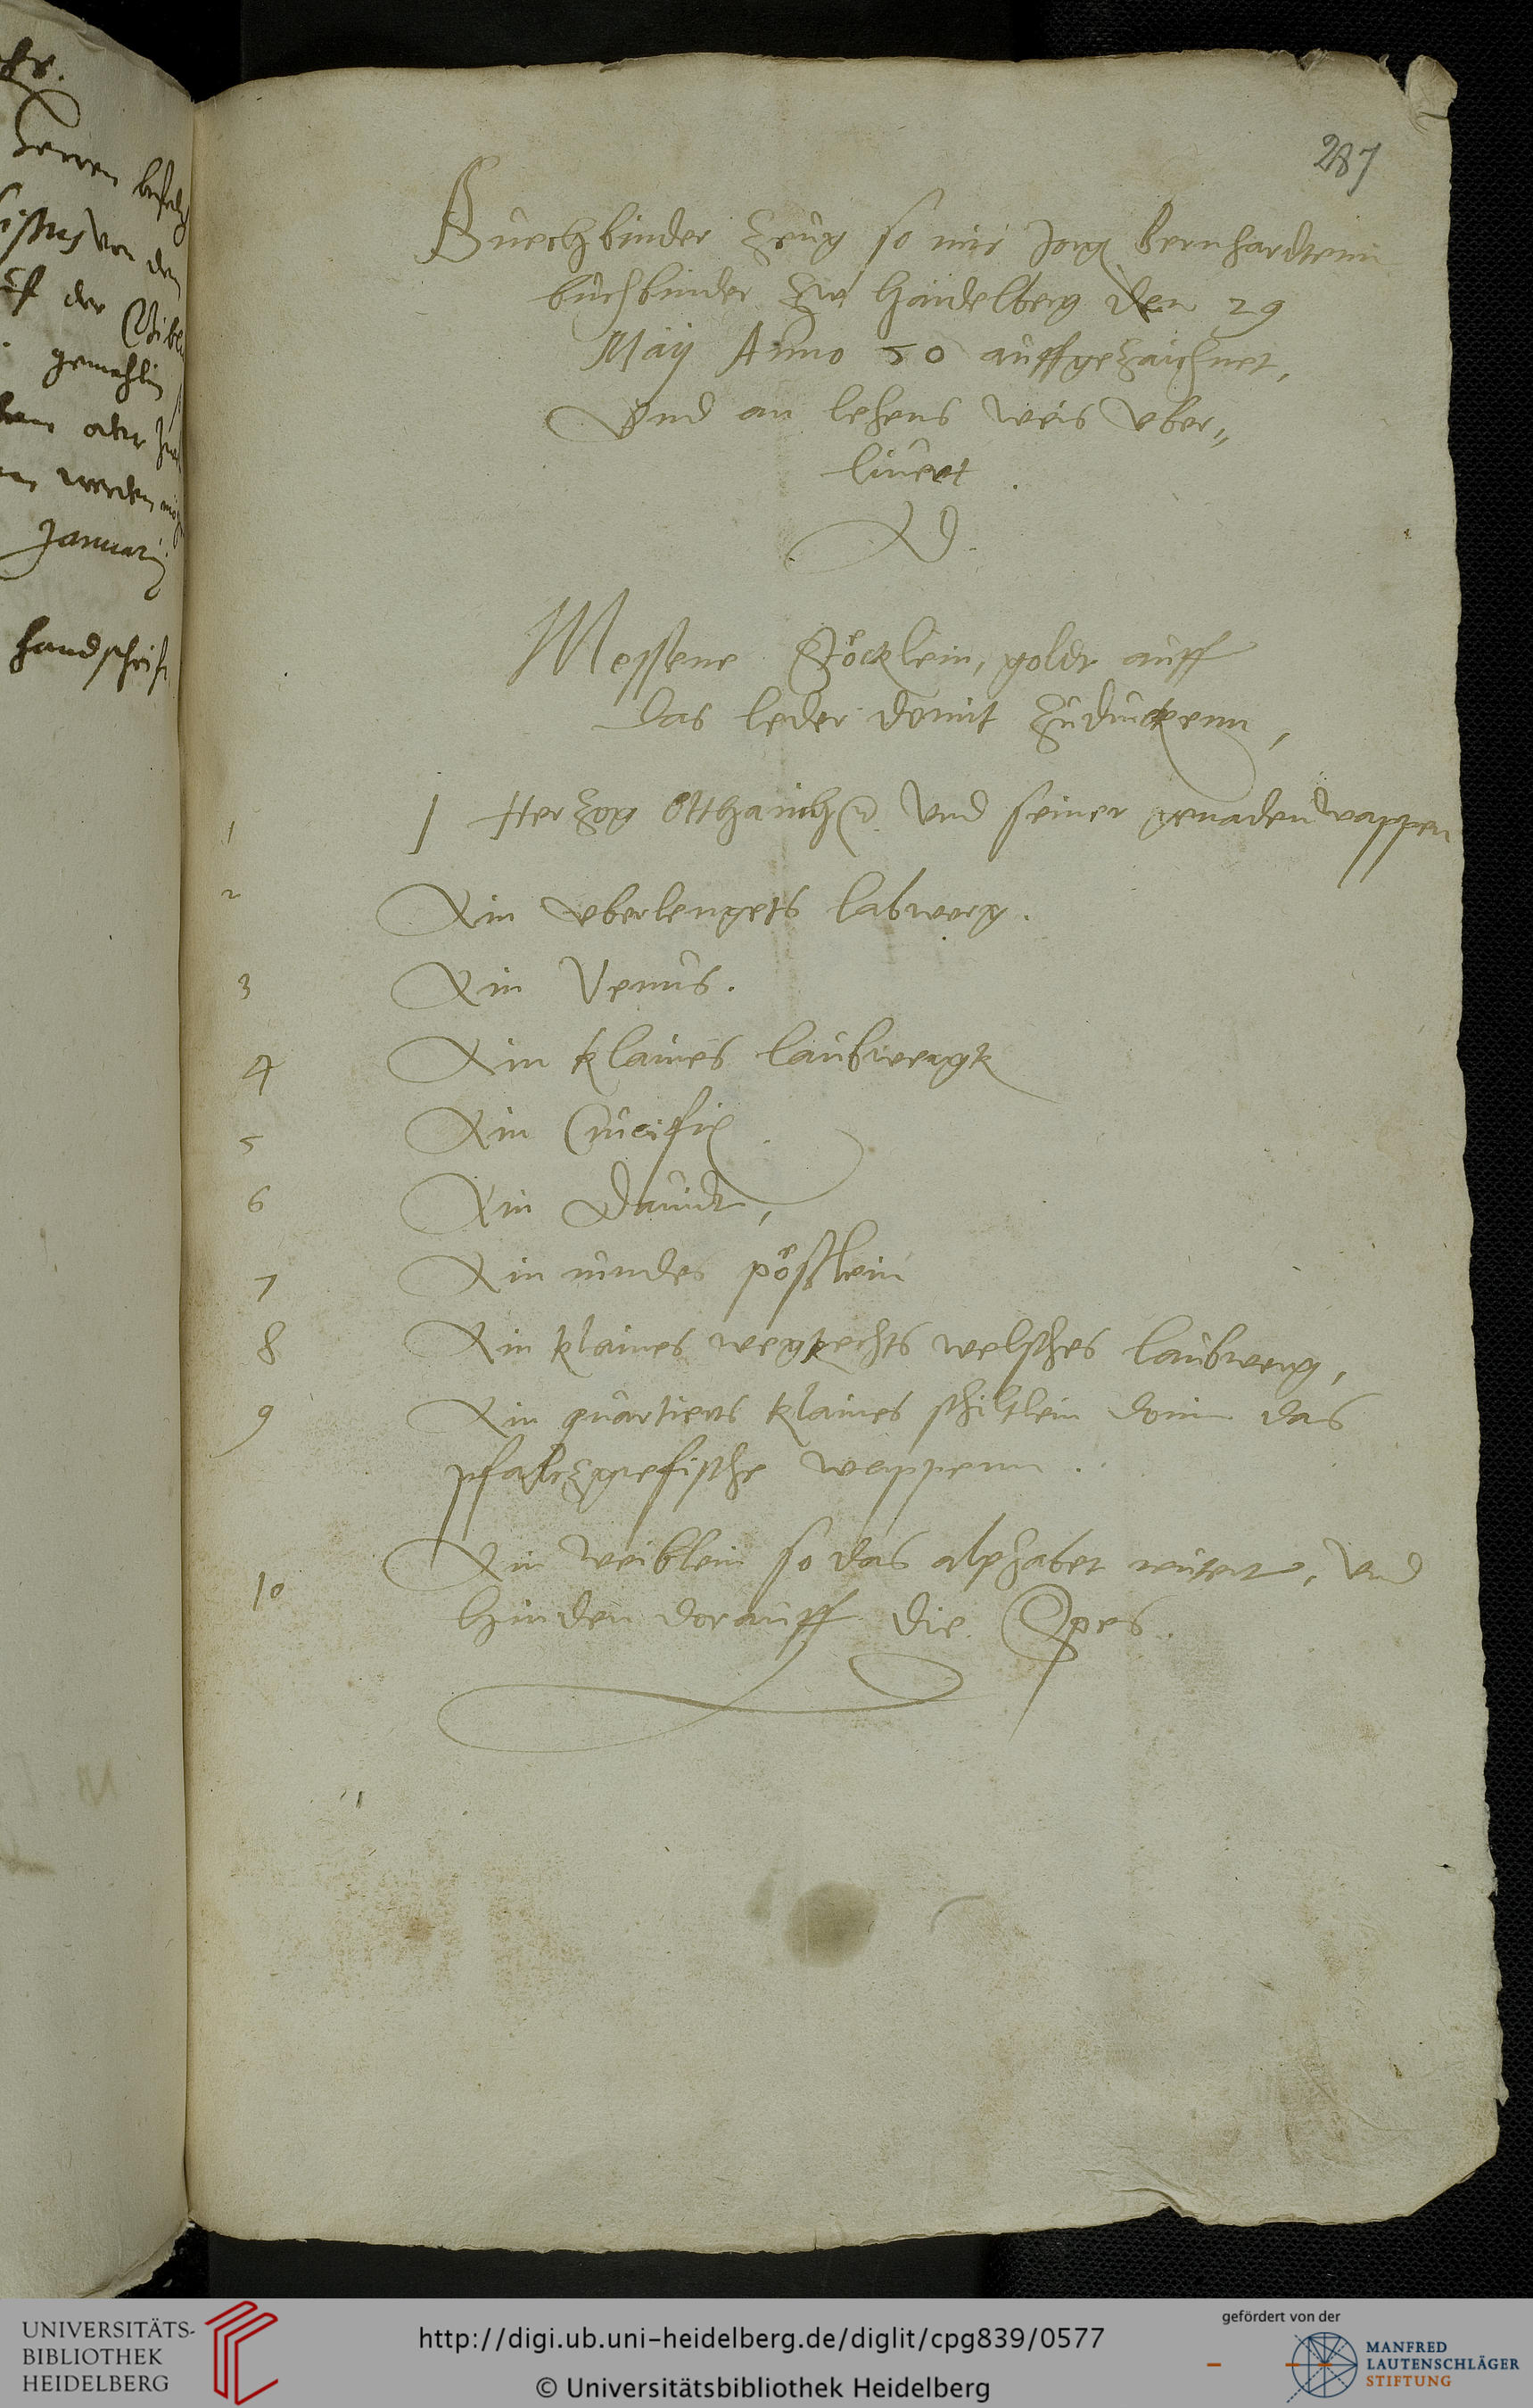 287
Buechbinder Zeug so mir Jorg Bernhardtenn
buchbinder zw Haidelberg den 29
Maij Anno 50 auffgezaichnet,
Vnd an lehens weis vber„
liuert.
Messene Stöcklein, goldt auff
das leder domit zudruckenn,
1 1 Herzog Otthainch und seiner genaden wappen
2 Ain vberlengets labwerg.
3 Ain Venus.
4 Ain klaines laubwergk
5 Ain Crucifix
6 Ain Dauidt,
7 Ain rundes pöstlein
8 Ain klaines welsches laubwerg,
9 Ain quartiers klaines schiltlein dorin das
pfaltzgrefische wappenn.
10 Ain weiblein so das alphabet, vnd
hinden dorauff die Spes.
Herren befelch
von den
der Bibl
gemahlin
oder
werden
Januarij
handschrift
UNIVERSITÄTS-
BIBLIOTHEK
HEIDELBERG
http://digi.ub.uni-heidelberg.de/diglit/cpg839/0577
© Universitätsbibliothek Heidelberg
gefördert von der
MANFRED
LAUTENSCHLÄGER
STIFTUNG